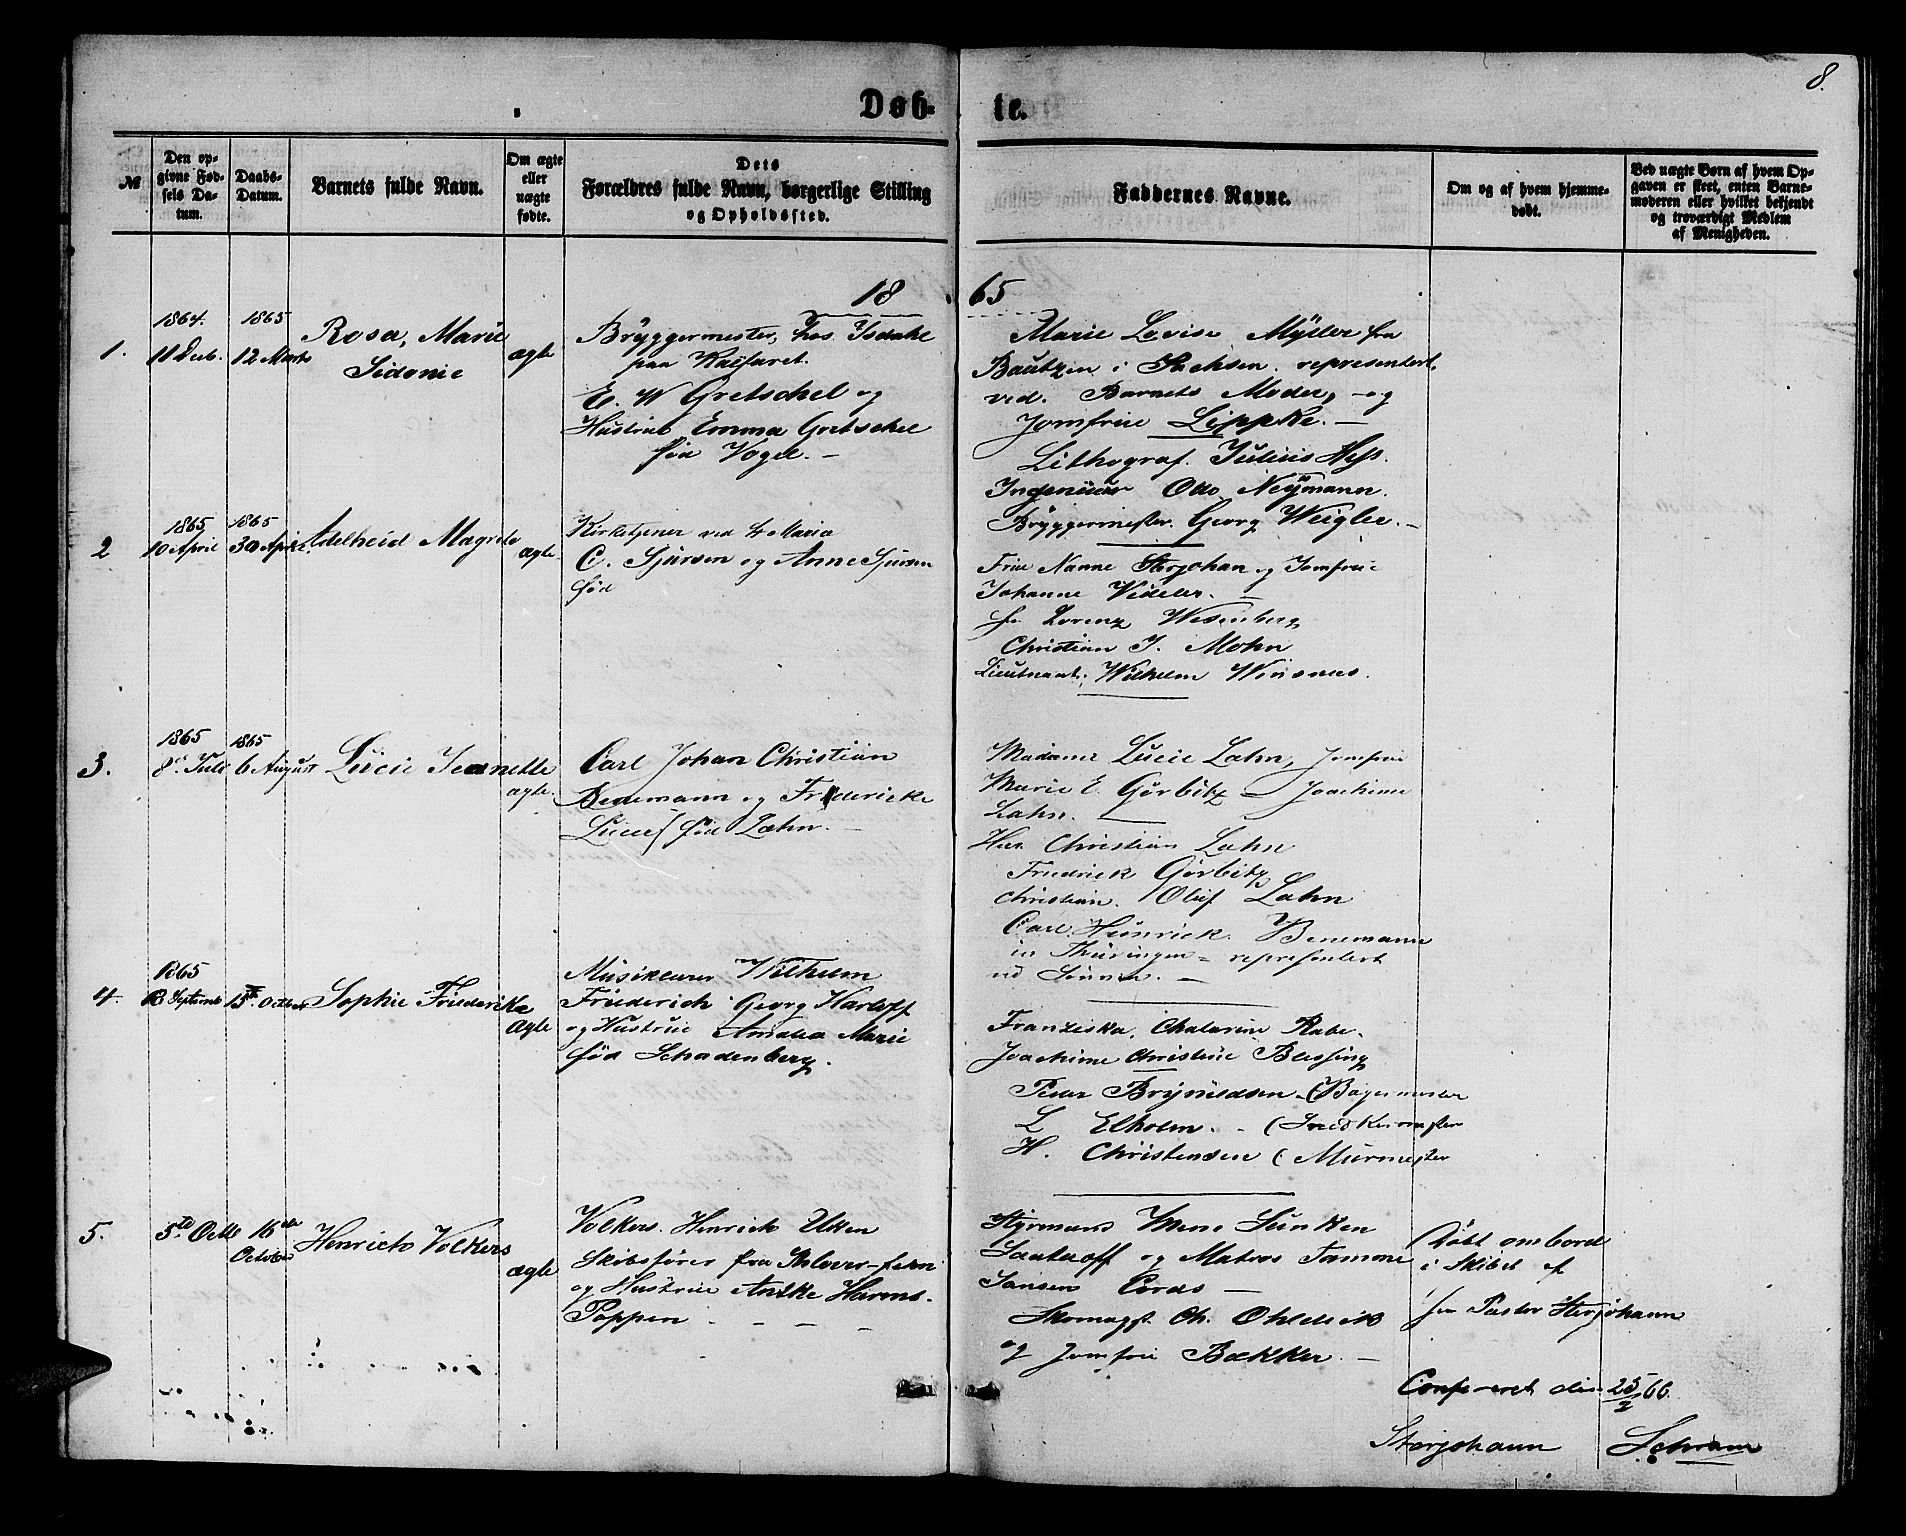 8.
Døb- te.
№
Den op-
givne Fød-
sels Da-
tum.
Daabs-
Datum.
Barnets fulde Navn.
Om ægte
eller
uægte
fødte.
Dets
Forældres fulde Navn, borgerlige Stilling
og Opholdssted.
Faddernes Navne.
Om og af hvem hjemme-
døbt.
Ved uægte Børn af hvem Op-
gaven er skeet, enten Barne-
moderen eller hvilket bekjendt
og troværdigt Medlem
af Menigheden.
18 65
1.
1864.
11 Decb.
1865
12 Marts
Rosa, Marie
Sidonie
ægte
Bryggermester, hos Isdahl
paa Kalfaret.
E. W Gretschel og
Hustrue Emma Gretschel
fød Vogel. –
Marie Lovise Myller fra
Bautzen i Sachsen. representert.
ved. Barnets Moder, – og
Jomfrue Lippke. –
Lithograf. Julius Hess.
Ingeniør Otto Neymann.
Bryggermester. Georg Weigler. –
2
1865
10 April
1865
30 April
Adelheid Magrete
ægte.
Kirketjener ved St Maria
C. Sjursen og Anne Sjursen
fød
Frue Nanne Sterjohan og Jomfrue
Johanne Wedeler. –
Lorenz Wesenberg
Christian J. Mohn
Lieutnant, Wilhelm Winsnes.
3.
1865
8de Juli
1865
6 August
Lucie Jeanette
ægte.
Carl Johan Christian
Benemann og Friderieke
Lucie fød Lahn. –
Madame Lucie Lahn, Jomfrue
Marie E Görbitz – Joachime
Lahn. –
Herr Christian Lahn
Friedrick Görbitz
Christian. Oluf Lahn
Carl. Heinrick. Benemann
in Thüringen = representert
ved Sönnen. –
4.
1865
13 Septembr
15de Octbr
Sophie Friederika
ægte
Musikeurer Wilhelm
Friederich Georg Harloff
og Hustrue Amalia Marie
fød Schadenberg.
Franziska, Chatarine Rabe.
Joachime Christine Blessing
Peder Brynildsen. (Bagermester
L Elholm. – (Snedkermester
H. Christensen (Murmester
5.
5te Octb
16de
October
Henrich Volkers
ægte
Volkers. Hinrich Uken
Skibsfører fra Ihlower-fehn
og Hustrue Antke Harms.
Poppen. – – –
Styrmans
og Matros Tamme
Jansen Cords –
Skomagst. Ch.
og Jomfrue Bækker. –
Døbt ombord
i Skibet af
Herr Pastor Sterjohann
Confereret den 25/2 66.
Sterjohann Schram